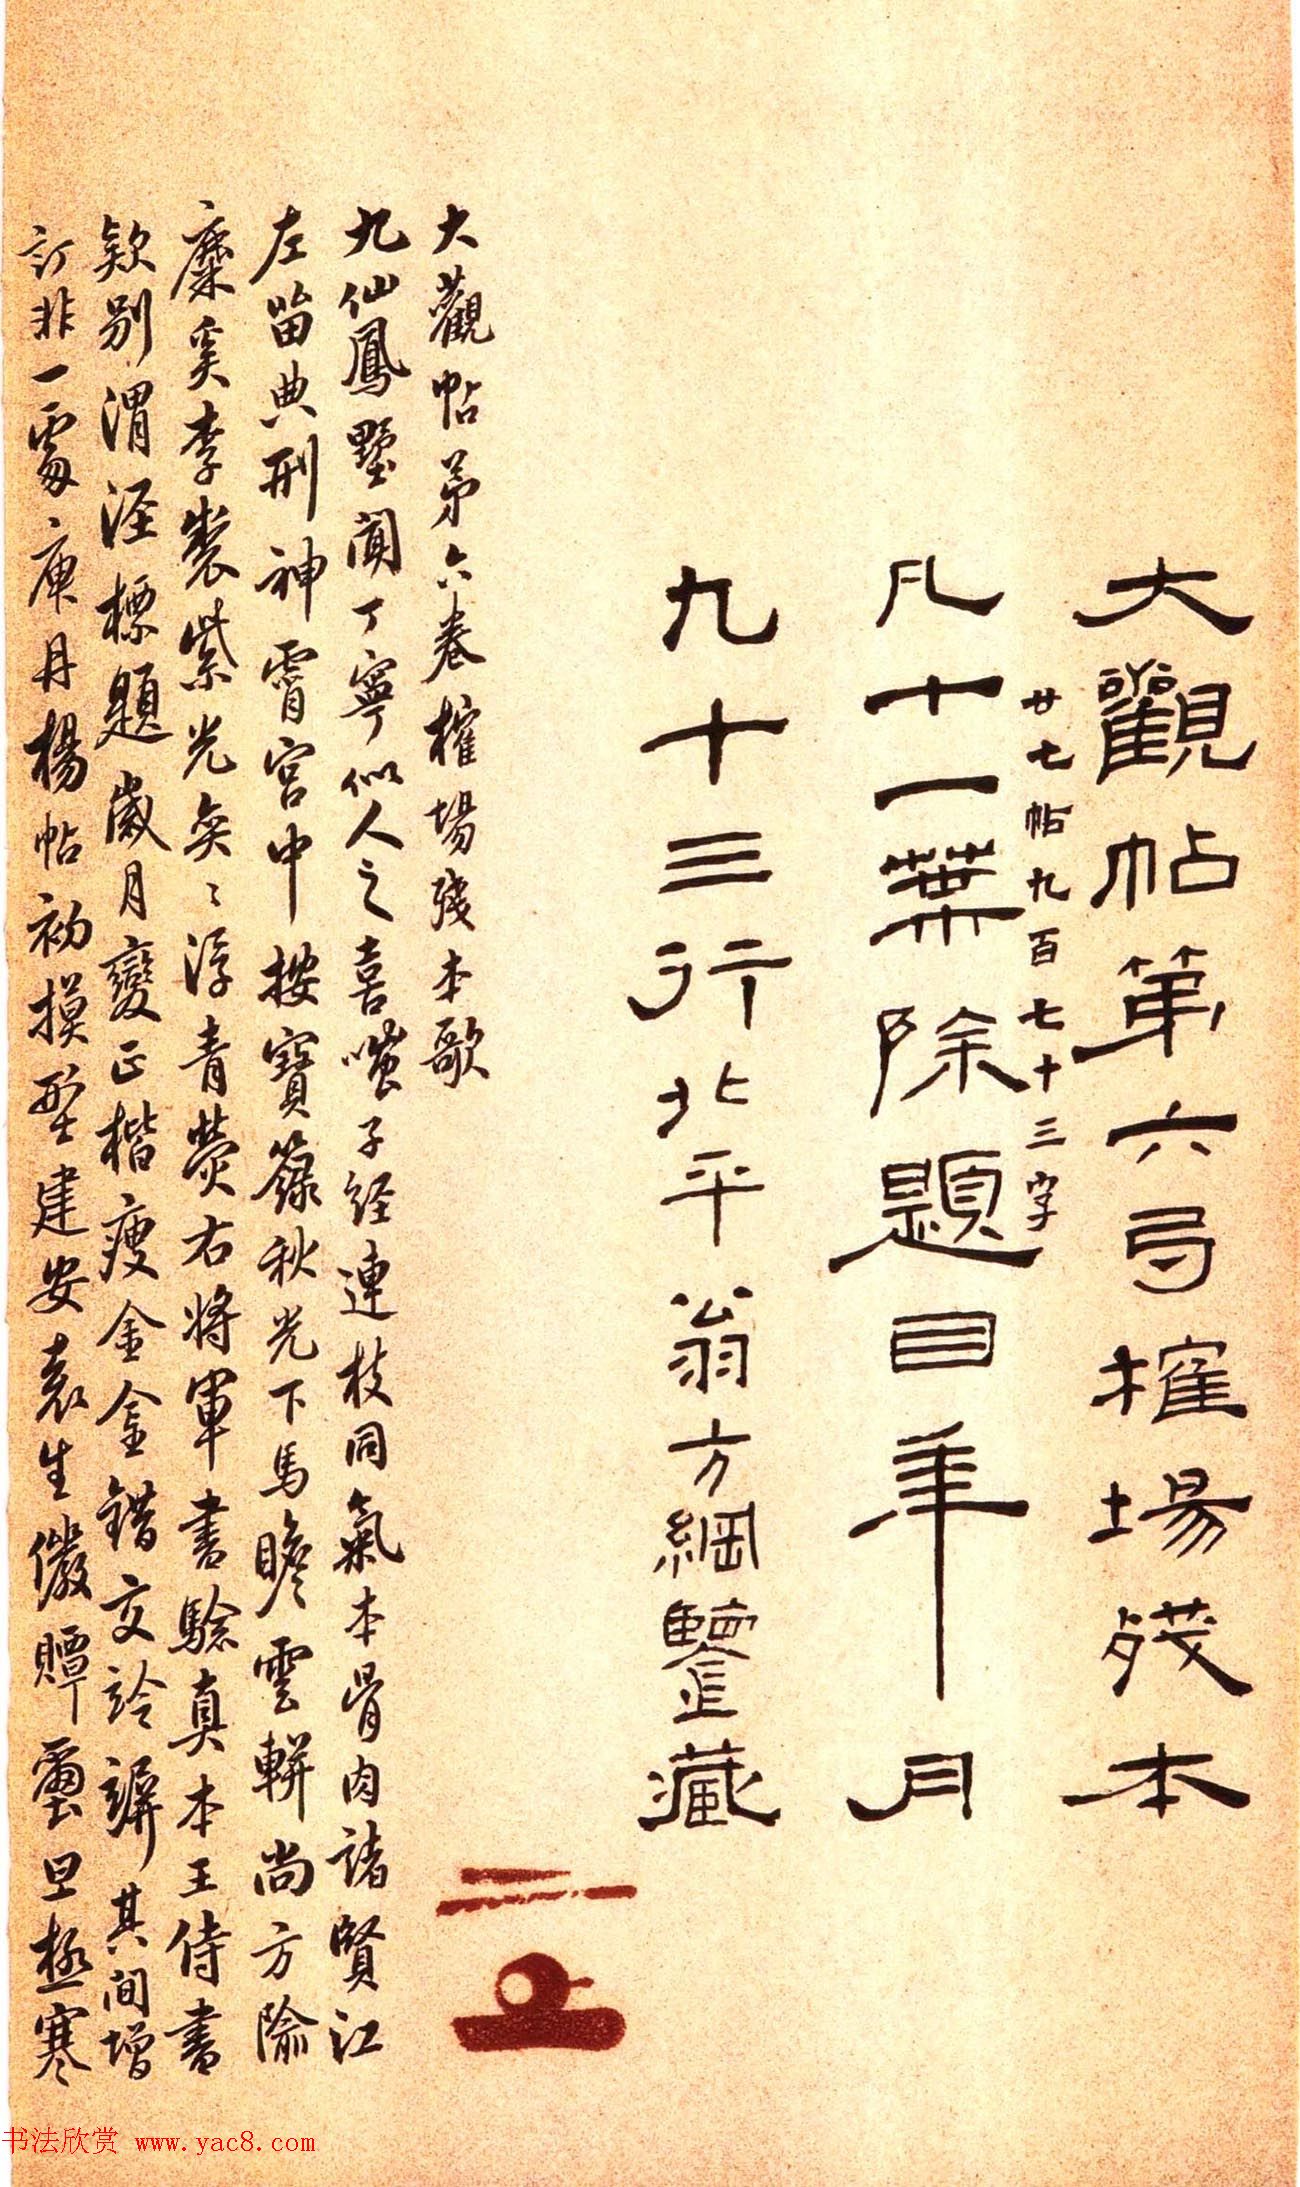 大觀帖第六𢎥榷場殘本
廿七帖九百七十三字
凡十一葉除題目年月
九十三行北平翁方綱鑒藏
大觀帖第六卷榷場殘本歌
九仙鳳墅聞丁寧似人之喜嗤子經連枝同氣本骨肉諸賢江
左留典刑神霄宮中按寶籙秋光下馬瞻雲輧尚方隃
麋奚李製紫光奕〻浮青熒右將軍書驗真本王侍書
款別渭涇標題歲月變正楷瘦金金錯交訡謙其間增
訂非一處庚丹楊帖初摸型建安袁生儆贉璽旦極寒
书法欣赏 www.yac8.com